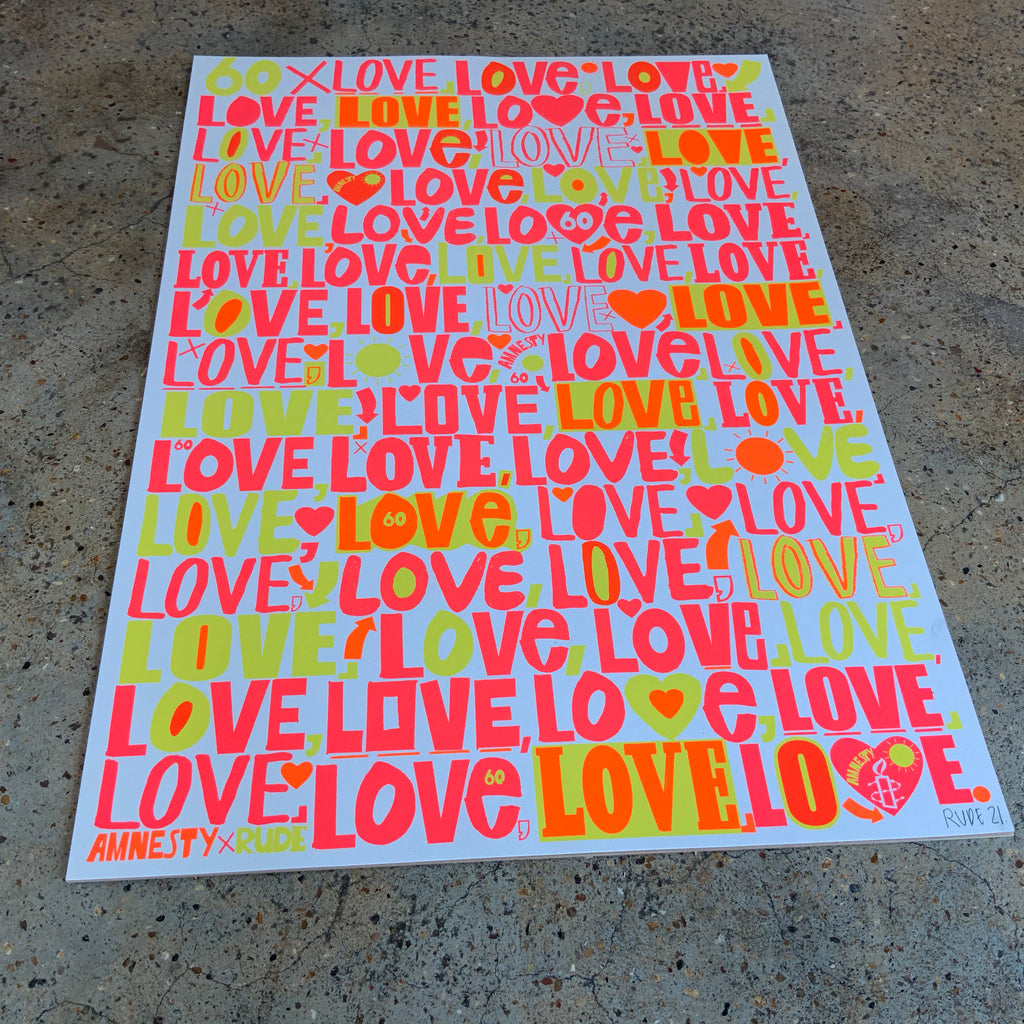 60×LOVE, LOVe, LOVe,
LOVE, LOVE, LO♥e, LOVE,
LOVE, LOVe, LOVE, LOVE,
LOVE, AMNESTY LOVe, LOVe, LOVE,
LOVE, LOVE, LO60e, LOVE,
LOVE, LOVe, LOVE, LOVE, LOVE,
LOVE, LOVE, LOVE, LOVE,
LOVE, LOVe, AMNESTY 60 LOVe, LOVE,
LOVE, LOVE, LOVe, LOVE,
60 LOVE, LOVE, LOVE, LOVE,
LOVE, LOVe 60, LOVE, LOVE,
LOVE, LOVE, LOVE, LOVE,
LOVE, LOVe, LOVE, LOVE,
LOVE, LOVE, LO♥e, LOVE,
LOVE, LOVe 60, LOVE, LO♥E. AMNESTY
AMNESTY×RUDE
RUDE 21